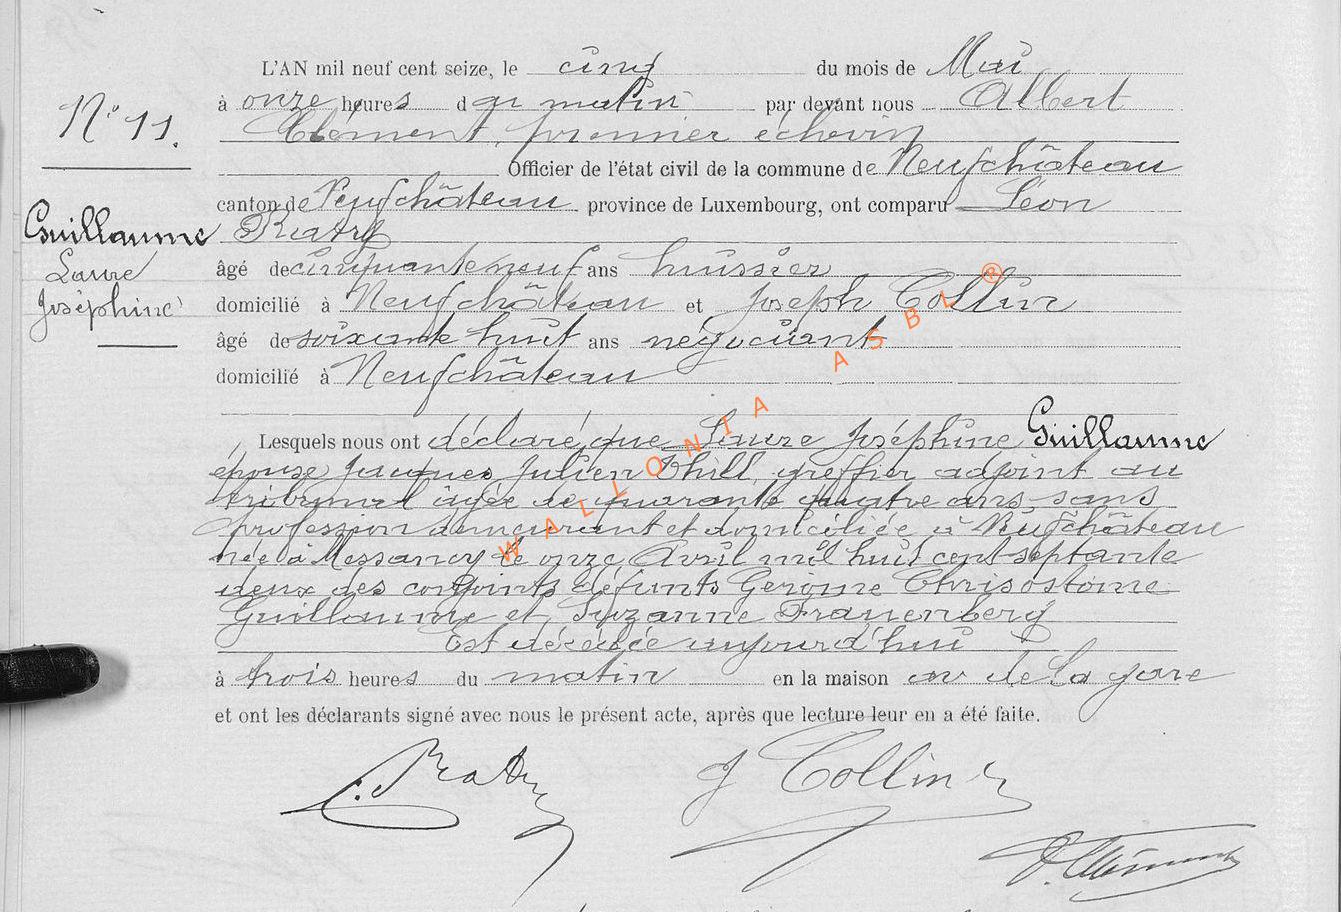 L'AN mil neuf cent seize, le cinq du mois de Mai
à onze heures du matin par devant nous Albert
N° 11.
Clément, premier échevin
Officier de l'état civil de la commune de Neufchâteau
canton de Neufchâteau province de Luxembourg, ont comparu Léon
Guillaume
Laure
Joséphine
âgé de cinquante neuf ans huissier
domicilié à Neufchâteau et Joseph Collin
âgé de soixante huit ans négociant
domicilié à Neufchâteau
Lesquels nous ont déclaré que Laure Joséphine Guillaume
épouse Jacques Julien Thill, greffier adjoint au
tribunal âgée de quarante quatre ans, sans
profession demeurant et domiciliée à Neufchâteau
née à Messancy le onze Avril mil huit cent septante
deux des conjoints défunts Gerôme Chrisostome
Guillaume et Suzanne Frauenberg
Est décédée aujourd'hui
à trois heures du matin en la maison av de la gare
et ont les déclarants signé avec nous le présent acte, après que lecture leur en a été faite.
J Collin
A. Clément
WALLONIA ASBL ®